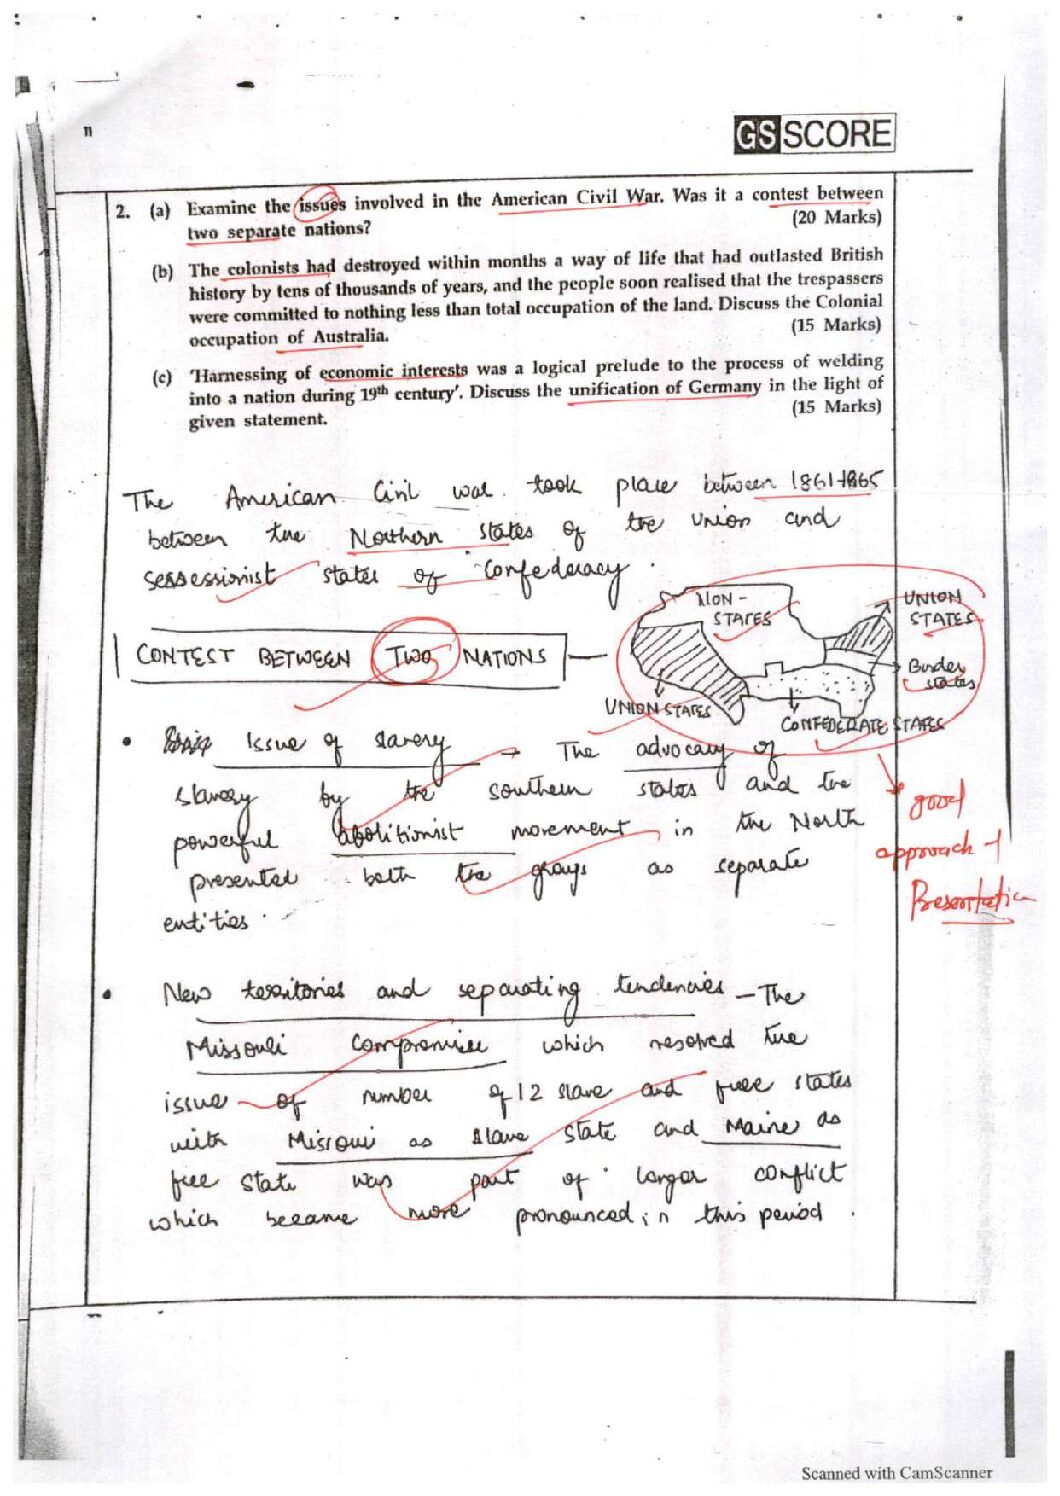 11
GS SCORE
2. (a) Examine the issues involved in the American Civil War. Was it a contest between
two separate nations? (20 Marks)
(b) The colonists had destroyed within months a way of life that had outlasted British
history by tens of thousands of years, and the people soon realised that the trespassers
were committed to nothing less than total occupation of the land. Discuss the Colonial
occupation of Australia. (15 Marks)
(c) 'Harnessing of economic interests was a logical prelude to the process of welding
into a nation during 19th century'. Discuss the unification of Germany in the light of
given statement. (15 Marks)
The American Civil war took place between 1861-1865
between the Northern states of the Union and
sessessionist states of Confederacy.
NON-
STATES
UNION
STATES
CONTEST BETWEEN TWO NATIONS
Border
states
UNION STATES
CONFEDERATE STATES
• Issue of slavery → The advocacy of
slavery by the southern states and the
powerful abolitionist movement in the North
presented both the groups as separate
entities.
good
approach of
Presentation
• New territories and separating tendencies - The
Missouli compromise which resolved the
issue of number of 12 slave and free states
with Missoui as slave state and Maine as
free state was part of larger conflict
which became more pronounced in this period.
Scanned with CamScanner